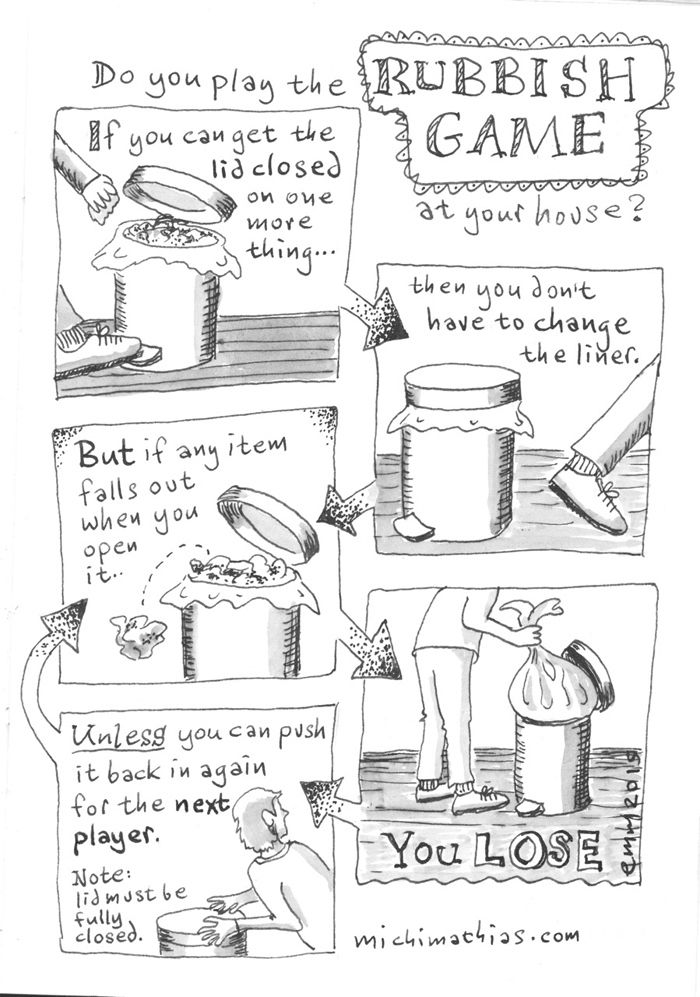 Do you play the
RUBBISH
GAME
at your house?
If you can get the
lid closed
on one
more
thing...
then you don't
have to change
the liner.
But if any item
falls out
when you
open
it..
You LOSE
emm2015
Unless you can push
it back in again
for the next
player.
Note:
lid must be
fully
closed.
michimathias.com